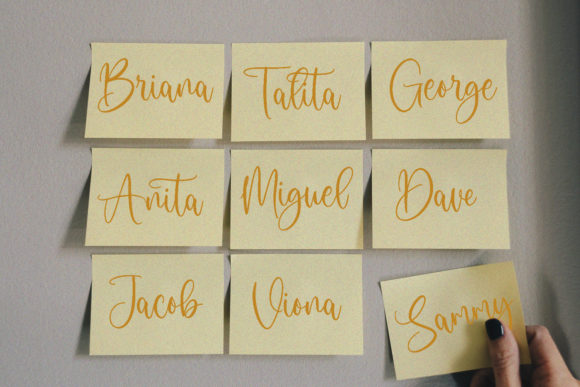 Briana Talita George
Anita Miguel Dave
Jacob Viona Sammy